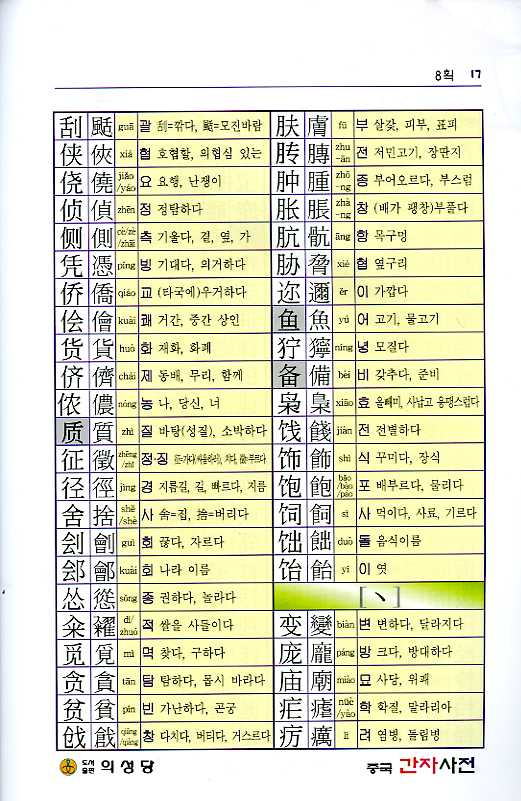 8획 17
刮 颳 guā 괄 刮=깎다, 颳=모진바람
侠 俠 xiá 협 호협할, 의협심 있는
侥 僥 jiǎo/yáo 요 요행, 난쟁이
侦 偵 zhēn 정 정탐하다
侧 側 cè/zè/zhāi 측 기울다, 곁, 옆, 가
凭 憑 píng 빙 기대다, 의거하다
侨 僑 qiáo 교 (타국에)우거하다
侩 儈 kuài 쾌 거간, 중간 상인
货 貨 huò 화 재화, 화폐
侪 儕 chái 제 동배, 무리, 함께
侬 儂 nóng 농 나, 당신, 너
质 質 zhì 질 바탕(성질), 소박하다
征 徵 zhēng/zhǐ 정·징
径 徑 jìng 경 지름길, 길, 빠르다, 지름
舍 捨 shě/shè 사 舍=집, 捨=버리다
刽 劊 guì 회 끊다, 자르다
郐 鄶 kuài 회 나라 이름
怂 慫 sǒng 종 권하다, 놀라다
籴 糴 dí/zhuó 적 쌀을 사들이다
觅 覓 mì 멱 찾다, 구하다
贪 貪 tān 탐 탐하다, 몹시 바라다
贫 貧 pín 빈 가난하다, 곤궁
戗 戧 qiāng/qiàng 창 다치다, 버티다, 거스르다
肤 膚 fū 부 살갗, 피부, 표피
䏝 膞 zhuān 전 저민고기, 장딴지
肿 腫 zhǒng 종 부어오르다, 부스럼
胀 脹 zhàng 창 (배가 팽창)부풀다
肮 骯 āng 항 목구멍
胁 脅 xié 협 옆구리
迩 邇 ěr 이 가깝다
鱼 魚 yú 어 고기, 물고기
狞 獰 níng 녕 모질다
备 備 bèi 비 갖추다, 준비
枭 梟 xiāo 효 올빼미, 사납고 용맹스럽다
饯 餞 jiàn 전 전별하다
饰 飾 shì 식 꾸미다, 장식
饱 飽 bǎo/bào/páo 포 배부르다, 물리다
饲 飼 sì 사 먹이다, 사료, 기르다
饳 飿 duò 돌 음식이름
饴 飴 yí 이 엿
[丶]
变 變 biàn 변 변하다, 달라지다
庞 龐 páng 방 크다, 방대하다
庙 廟 miào 묘 사당, 위패
疟 瘧 nüè/yào 학 학질, 말라리아
疠 癘 lì 려 염병, 돌림병
도서출판 의성당
중국 간자사전